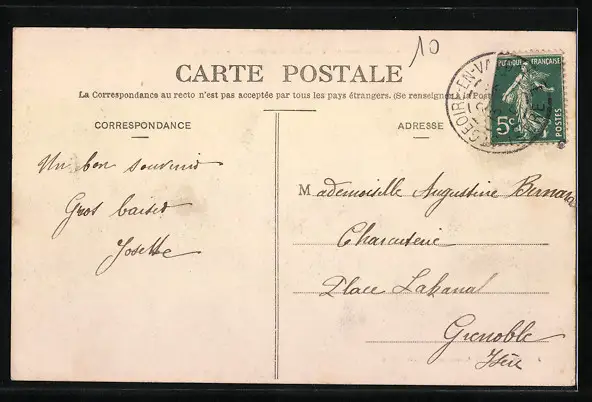 10
CARTE POSTALE
La Correspondance au recto n'est pas acceptée par tous les pays étrangers. (Se renseigner à la Poste
CORRESPONDANCE
ADRESSE
Un bon souvenir
Gros baiser
Josette
Mademoiselle Augustine Bernard
Charcuterie
Place Lakanal
Grenoble
Isère
GEOIRE-EN-VA
FRANÇAISE
5c
POSTES